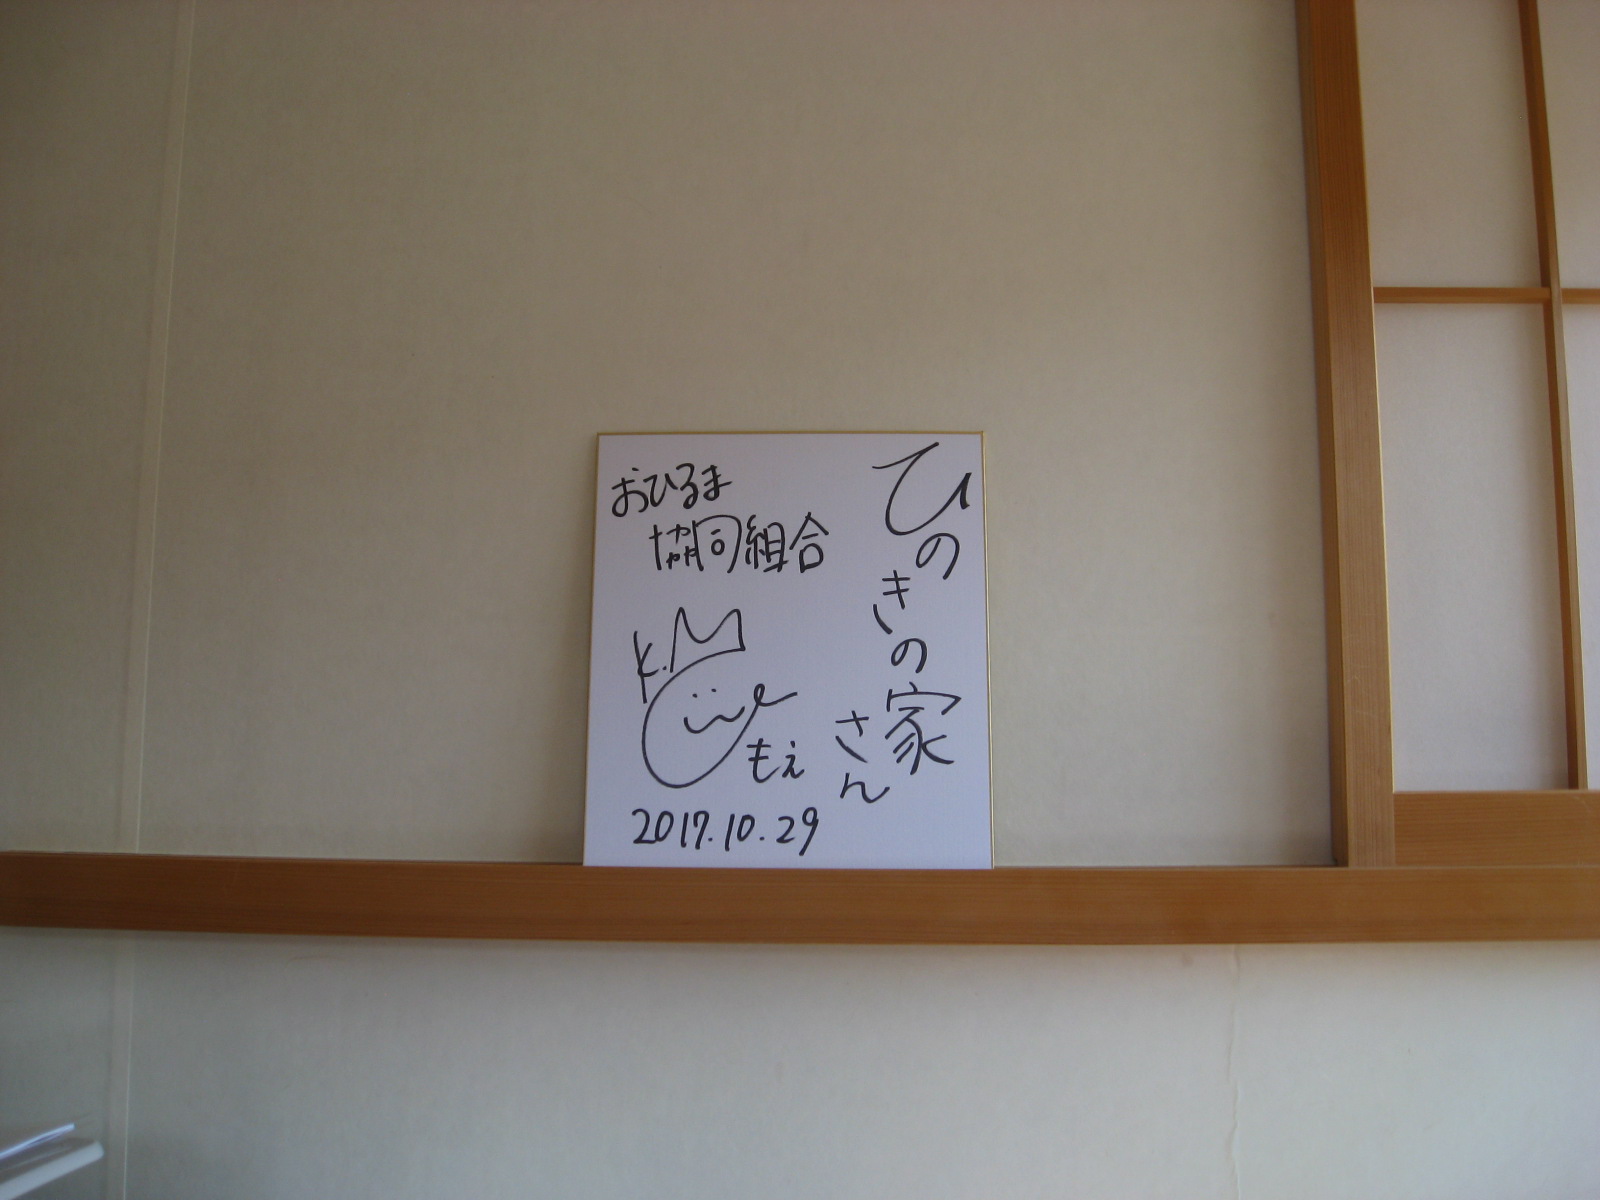 ひのきの家
さん
おひるま
協同組合
K.M
もえ
2017.10.29